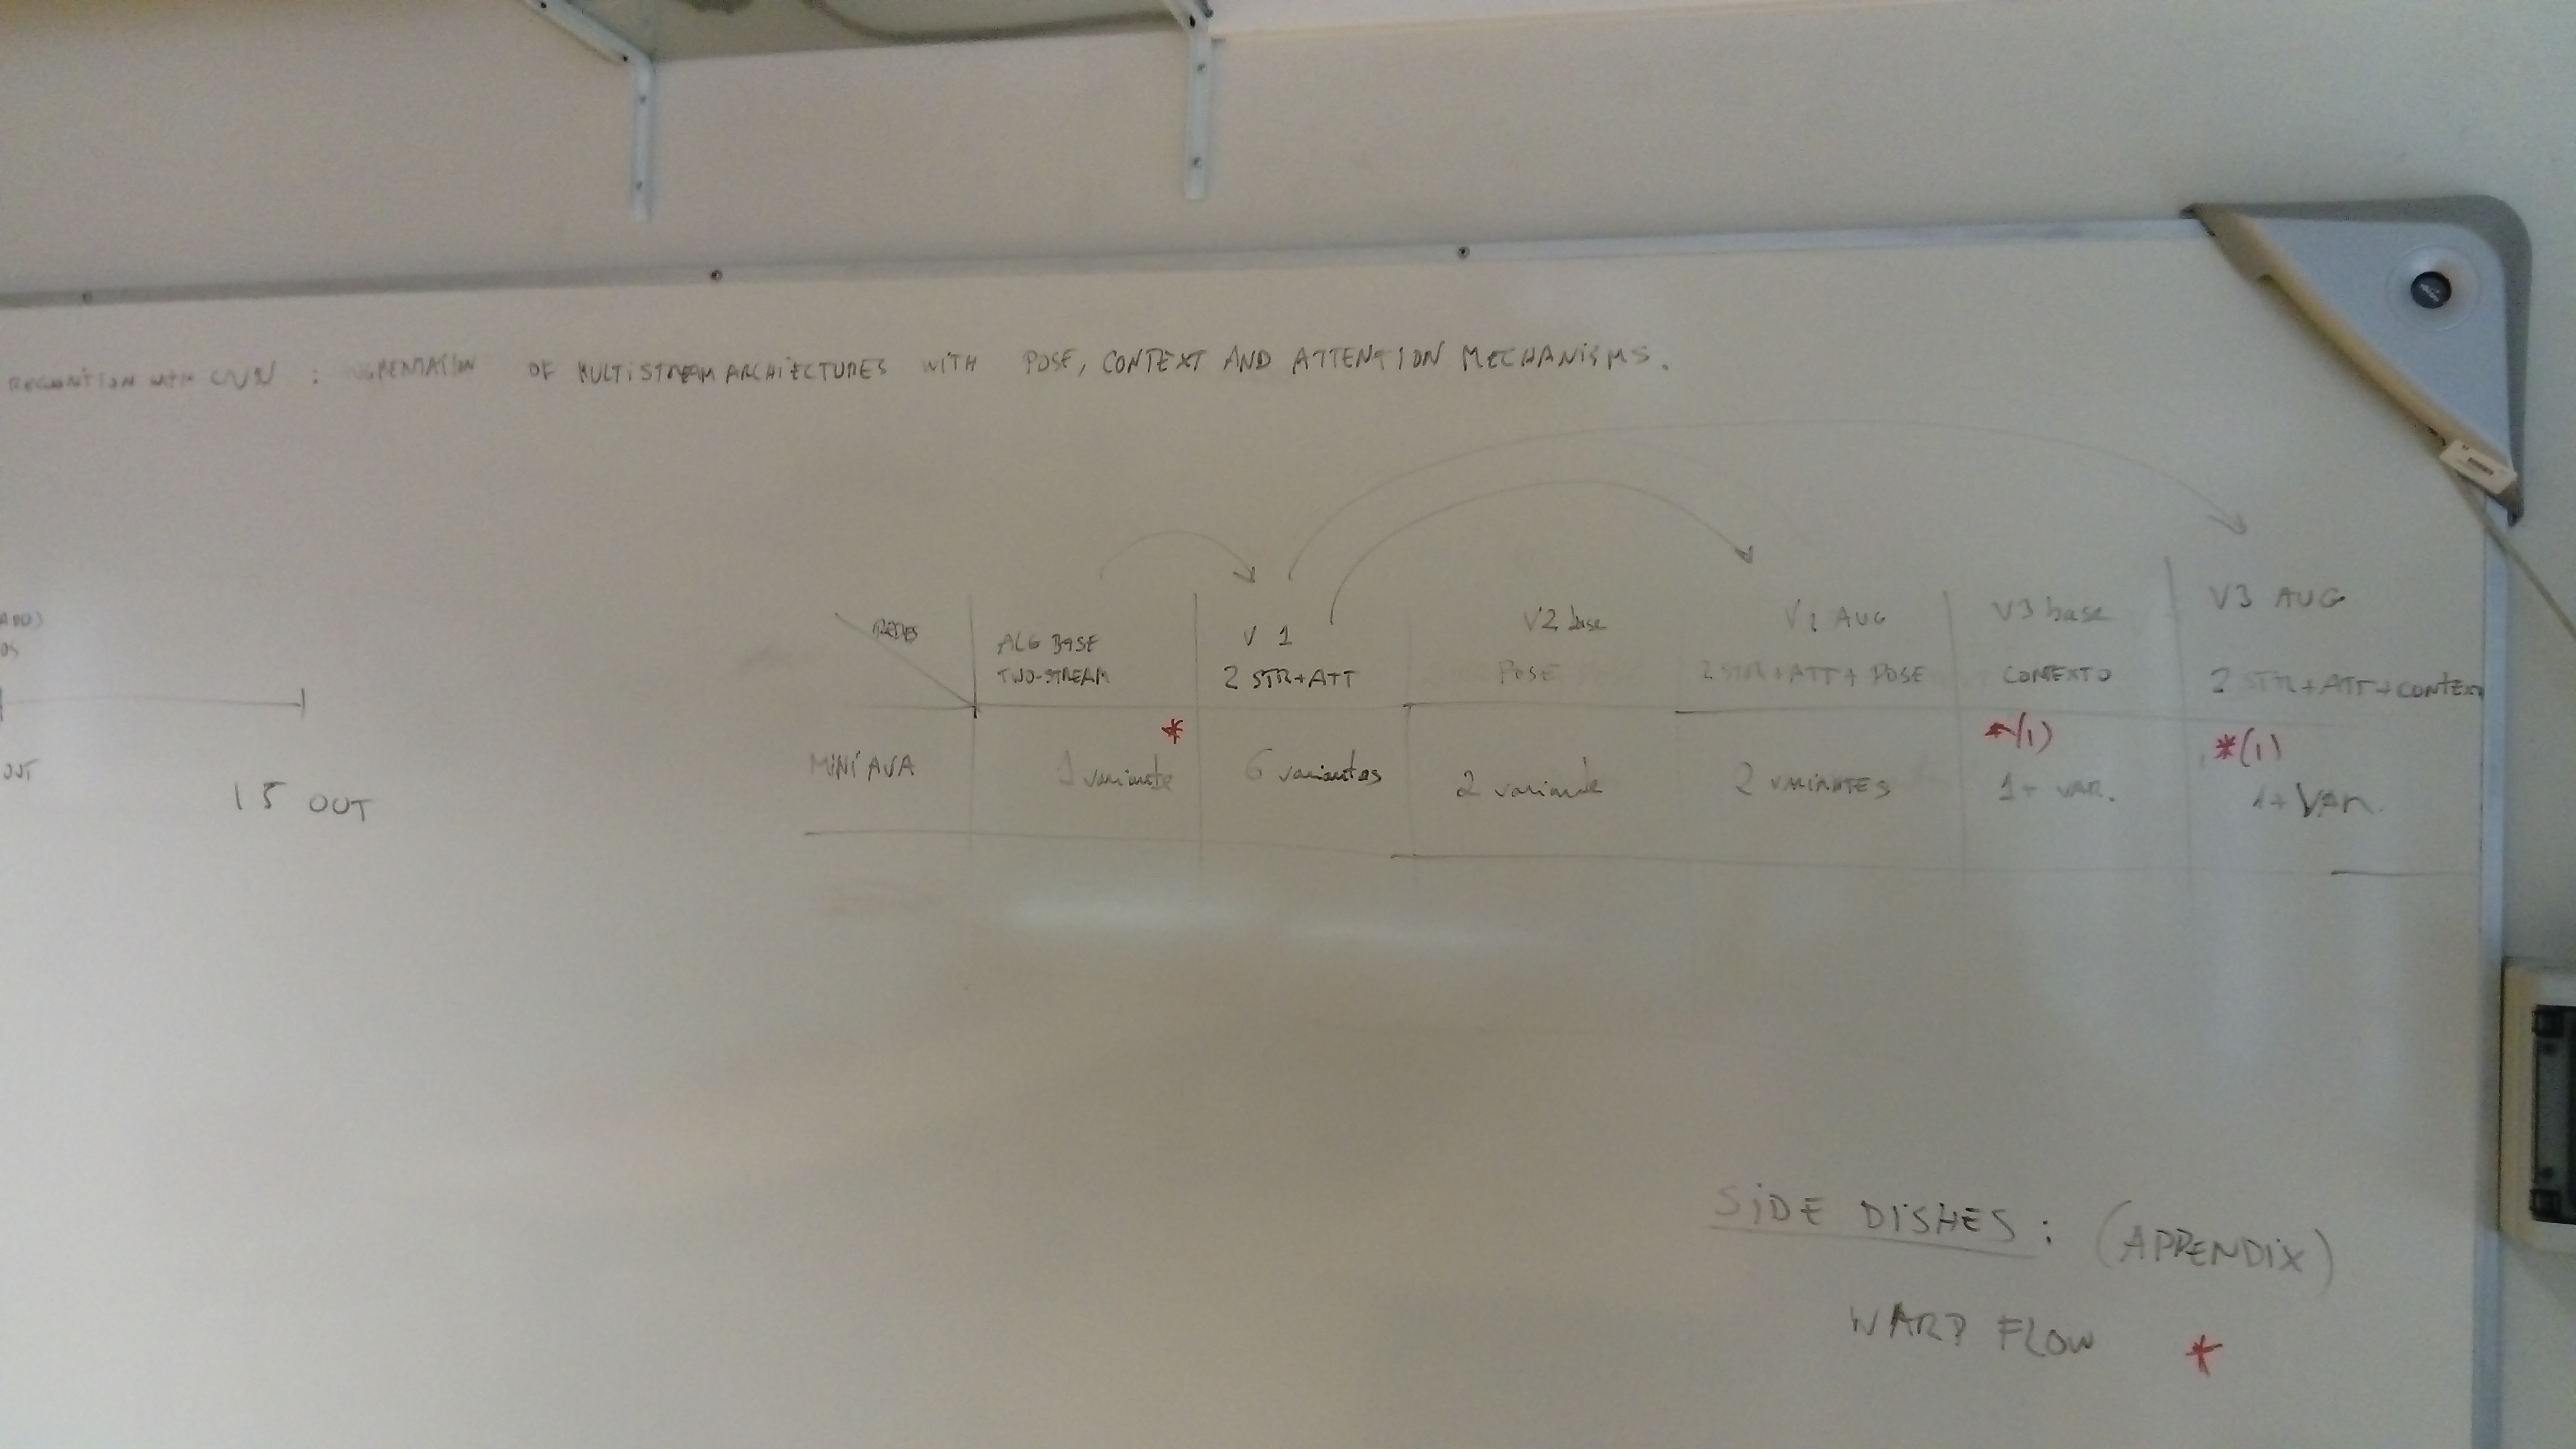 RECOGNITION WITH CNN : UGMENTATION OF MULTISTREAM ARCHIECTURES WITH POSE, CONTEXT AND ATTENTION MECHANISMS.
OS
OUT
15 OUT
REDES
ALG BASE
TWO-STREAM
V 1
2 STR+ATT
V2 base
POSE
V2 AUG
2 STR+ATT+POSE
V3 base
CONTEXTO
V3 AUG
2 STR+ATT+CONTEXT
MINI AVA
* 1 variante
6 variantes
2 variante
2 VARIANTES
*(1)
1+ VAR.
*(1)
1+ VAR.
SIDE DISHES: (APPENDIX)
WARP FLOW *